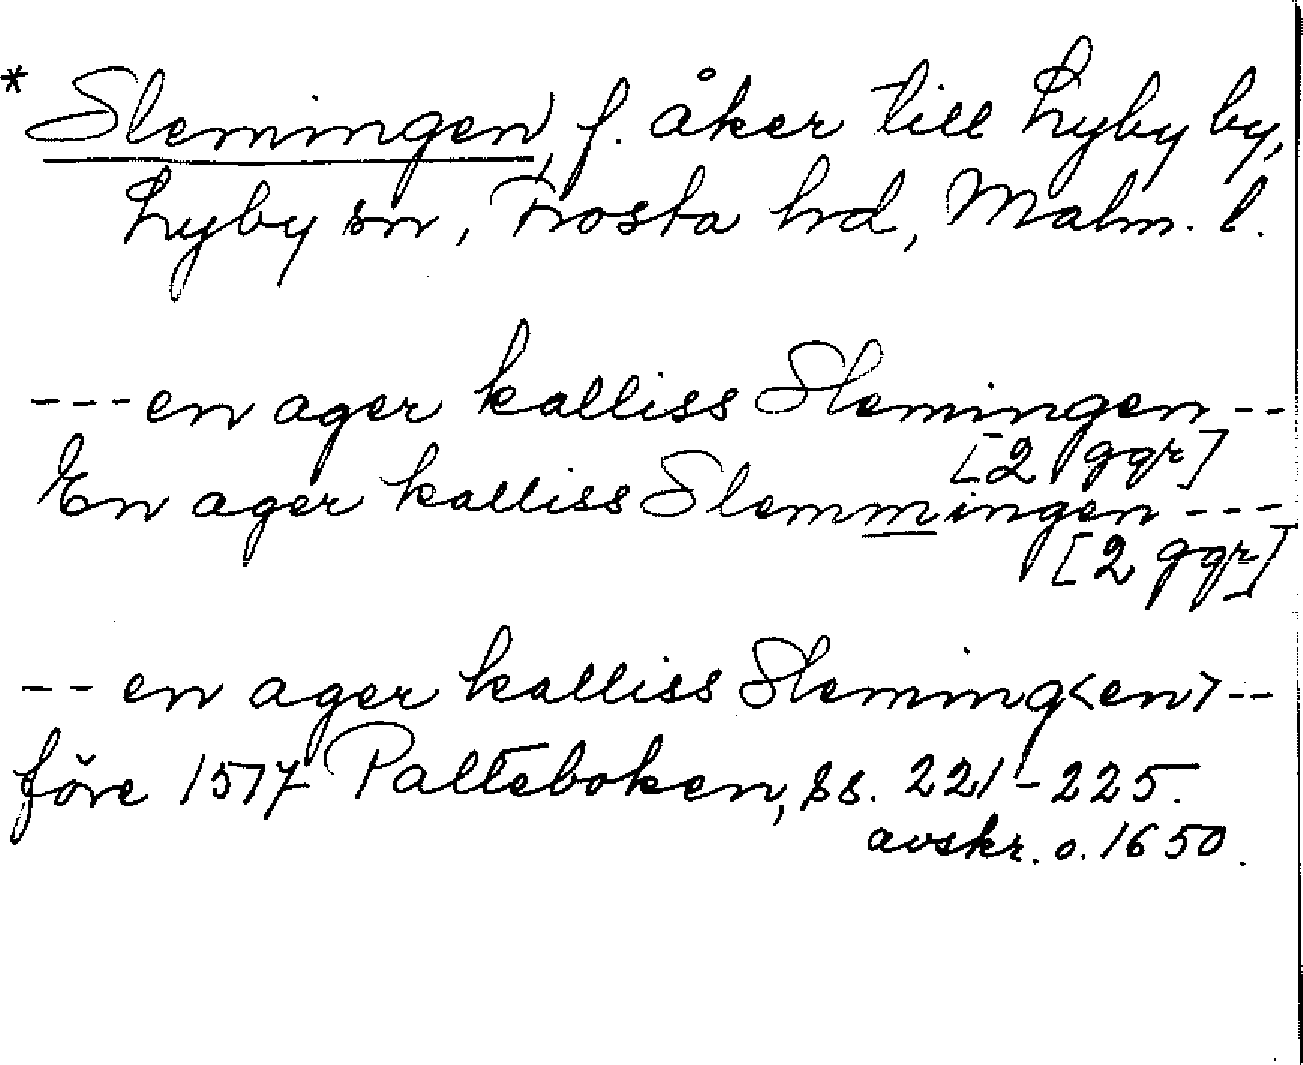 * Slemingen, f. åker till Lyby by,
Lyby sn, Frosta hd, Malm. l.
--- en ager kalliss Slemingen --
[2 ggr]
En ager kalliss Slemmingen ---
[2 ggr]
-- en ager kalliss Sleming<en> --
före 1517 Palteboken, ss. 221-225.
avskr. o. 1650.